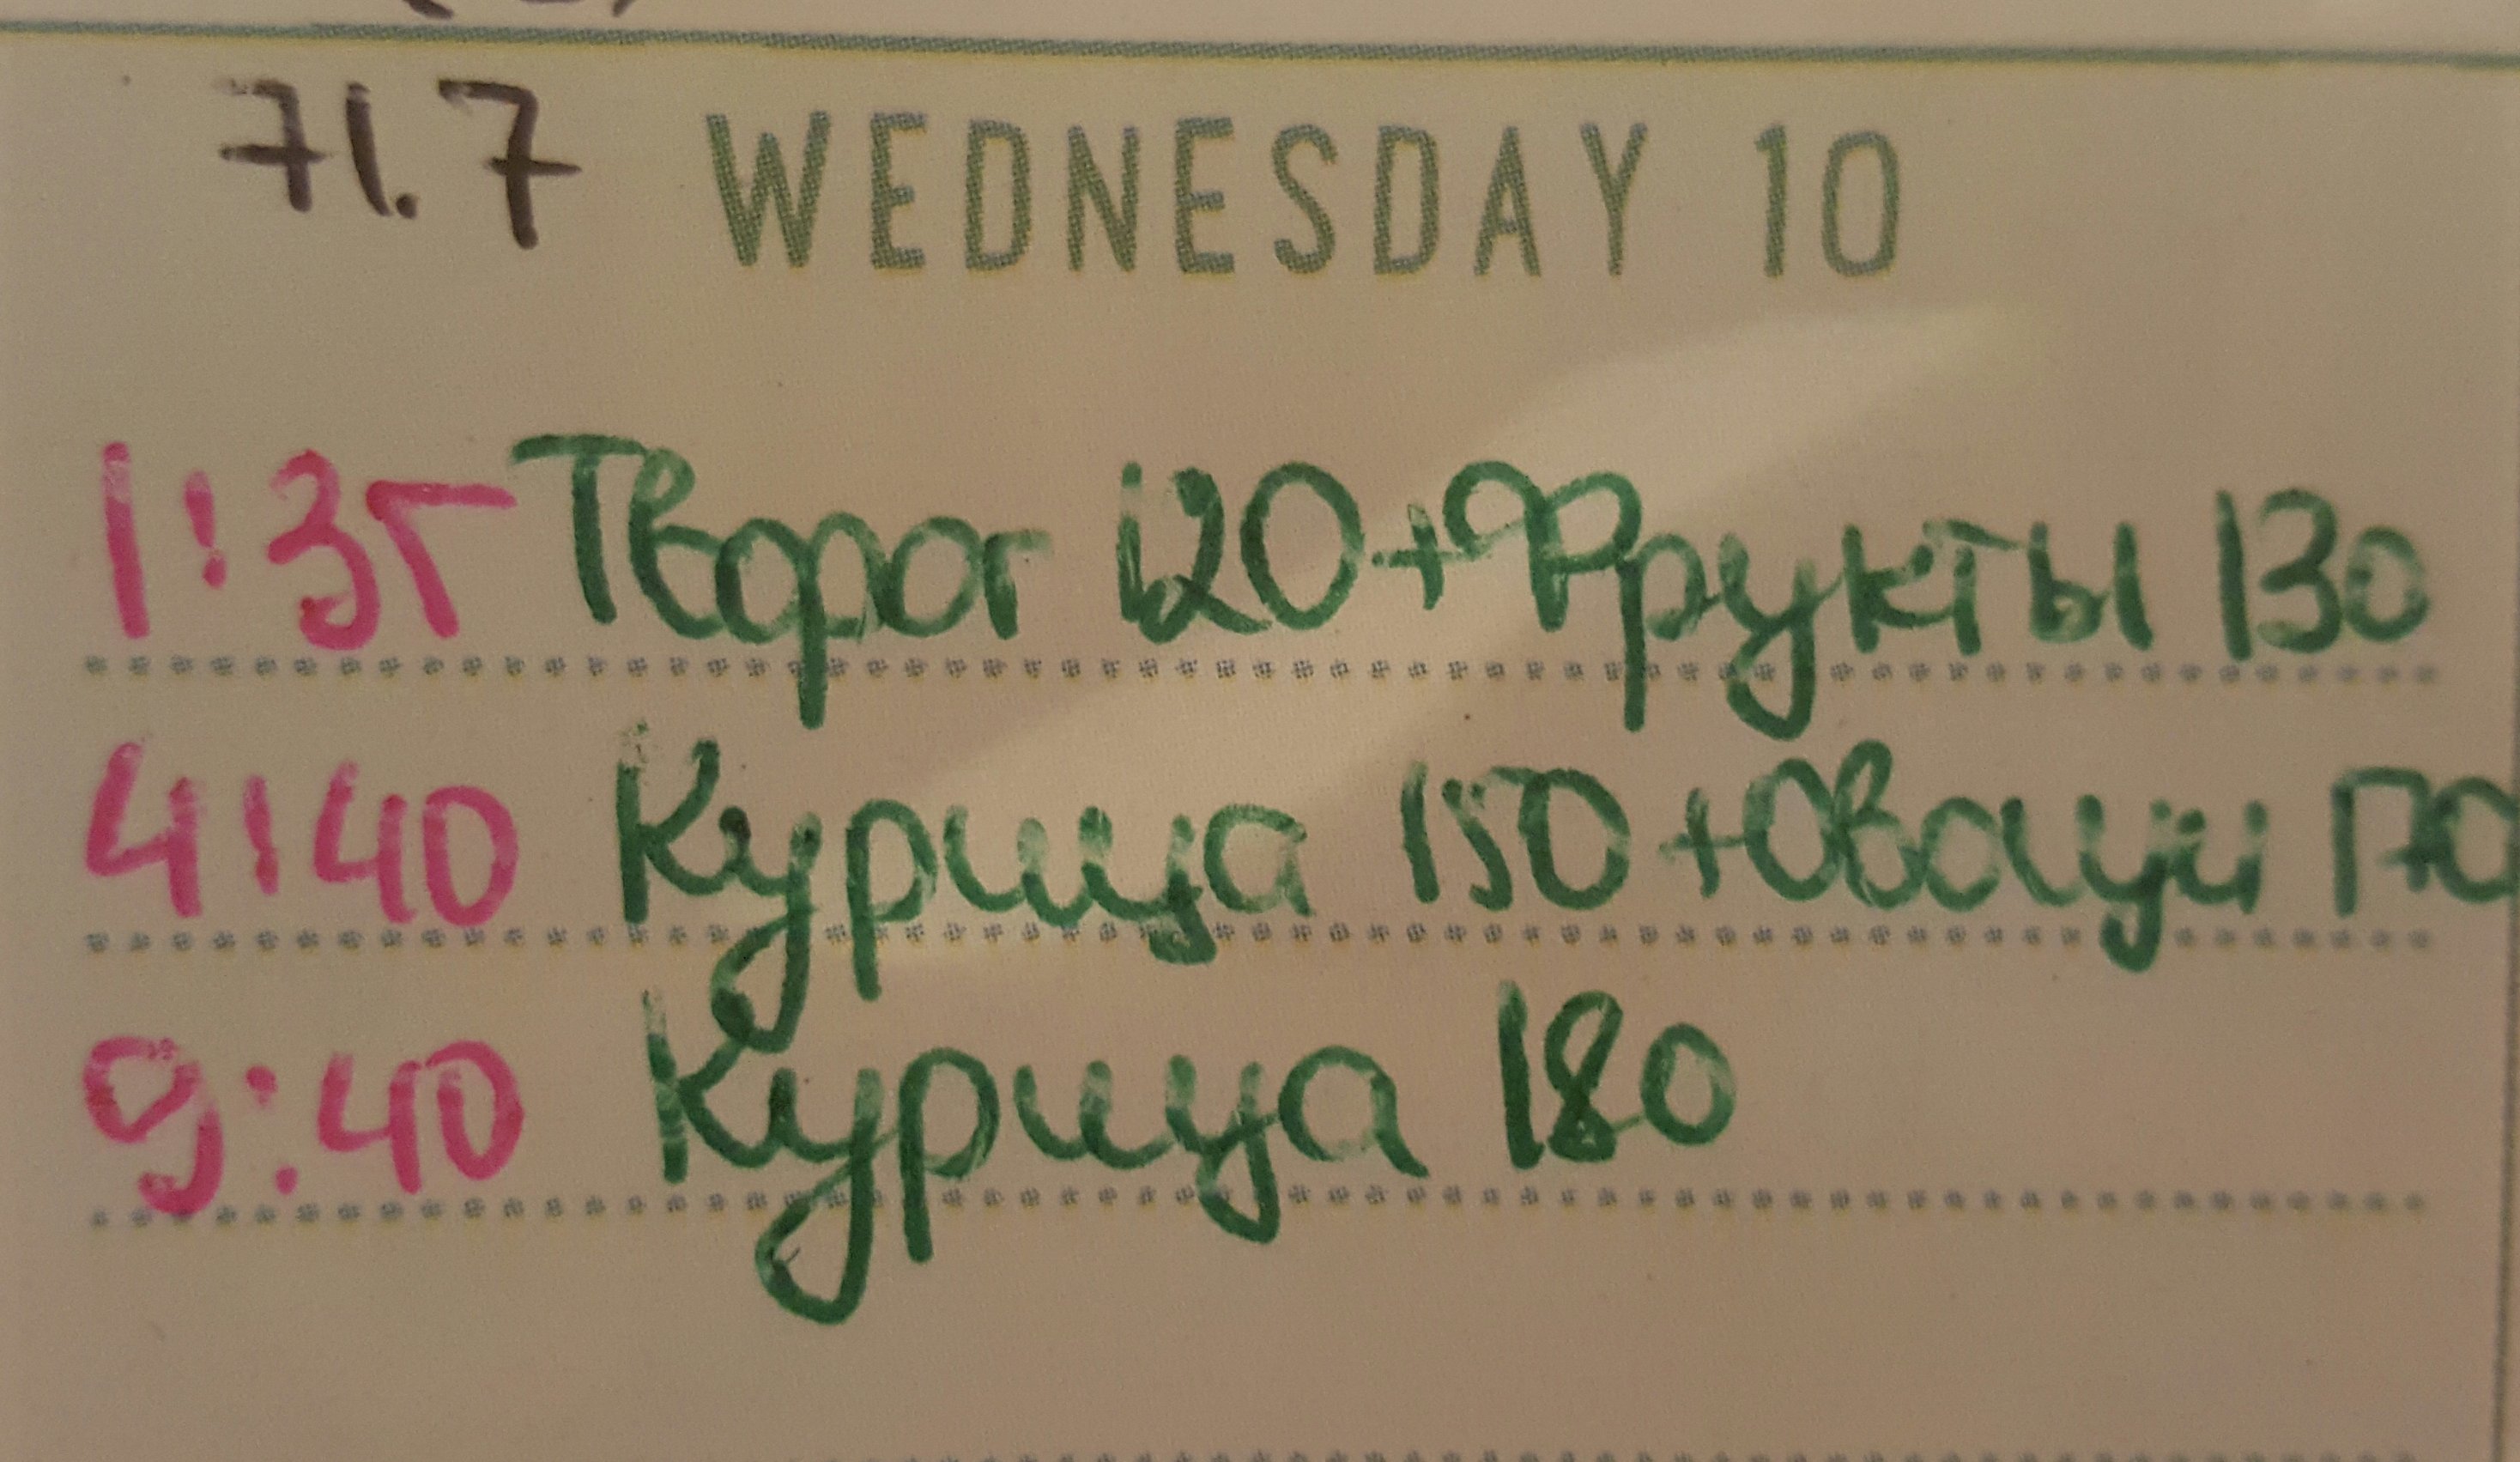 71.7 WEDNESDAY 10
1:35 Творог 120+Фрукты 130
4:40 Курица 150+Овощи 170
9:40 Курица 180